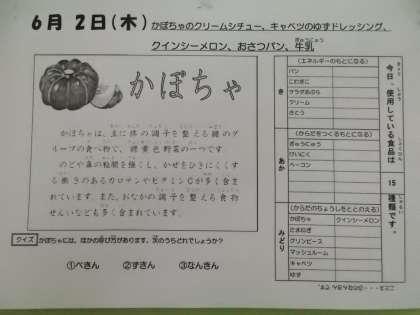 6月 2日(木) かぼちゃのクリームシチュー、キャベツのゆずドレッシング、
クインシーメロン、おさつパン、牛乳
ぎゅうにゅう
かぼちゃ
かぼちゃは、主に体の調子を整える緑のグ
ループの食べ物で、緑黄色野菜の一つです。
のどや鼻の粘膜を強くし、かぜをひきにくくす
る働きのあるカロテンやビタミンCが多く含ま
れています。また、おなかの調子を整える食物
せんいなども多く含まれています。
クイズ かぼちゃには、ほかの呼び方があります。次のうちどれでしょうか?
①べきん ②ずきん ③なんきん
今日、使用している食品は
15
種類です。
き
(エネルギーのもとになる)
パン
こむぎこ
サラダあぶら
クリーム
さとう
あか
(からだをつくるもとになる)
ぎゅうにゅう
けいにく
ベーコン
みどり
(からだのちょうしをととのえる)
かぼちゃ クインシーメロン
たまねぎ
グリンピース
マッシュルーム
キャベツ
ゆず